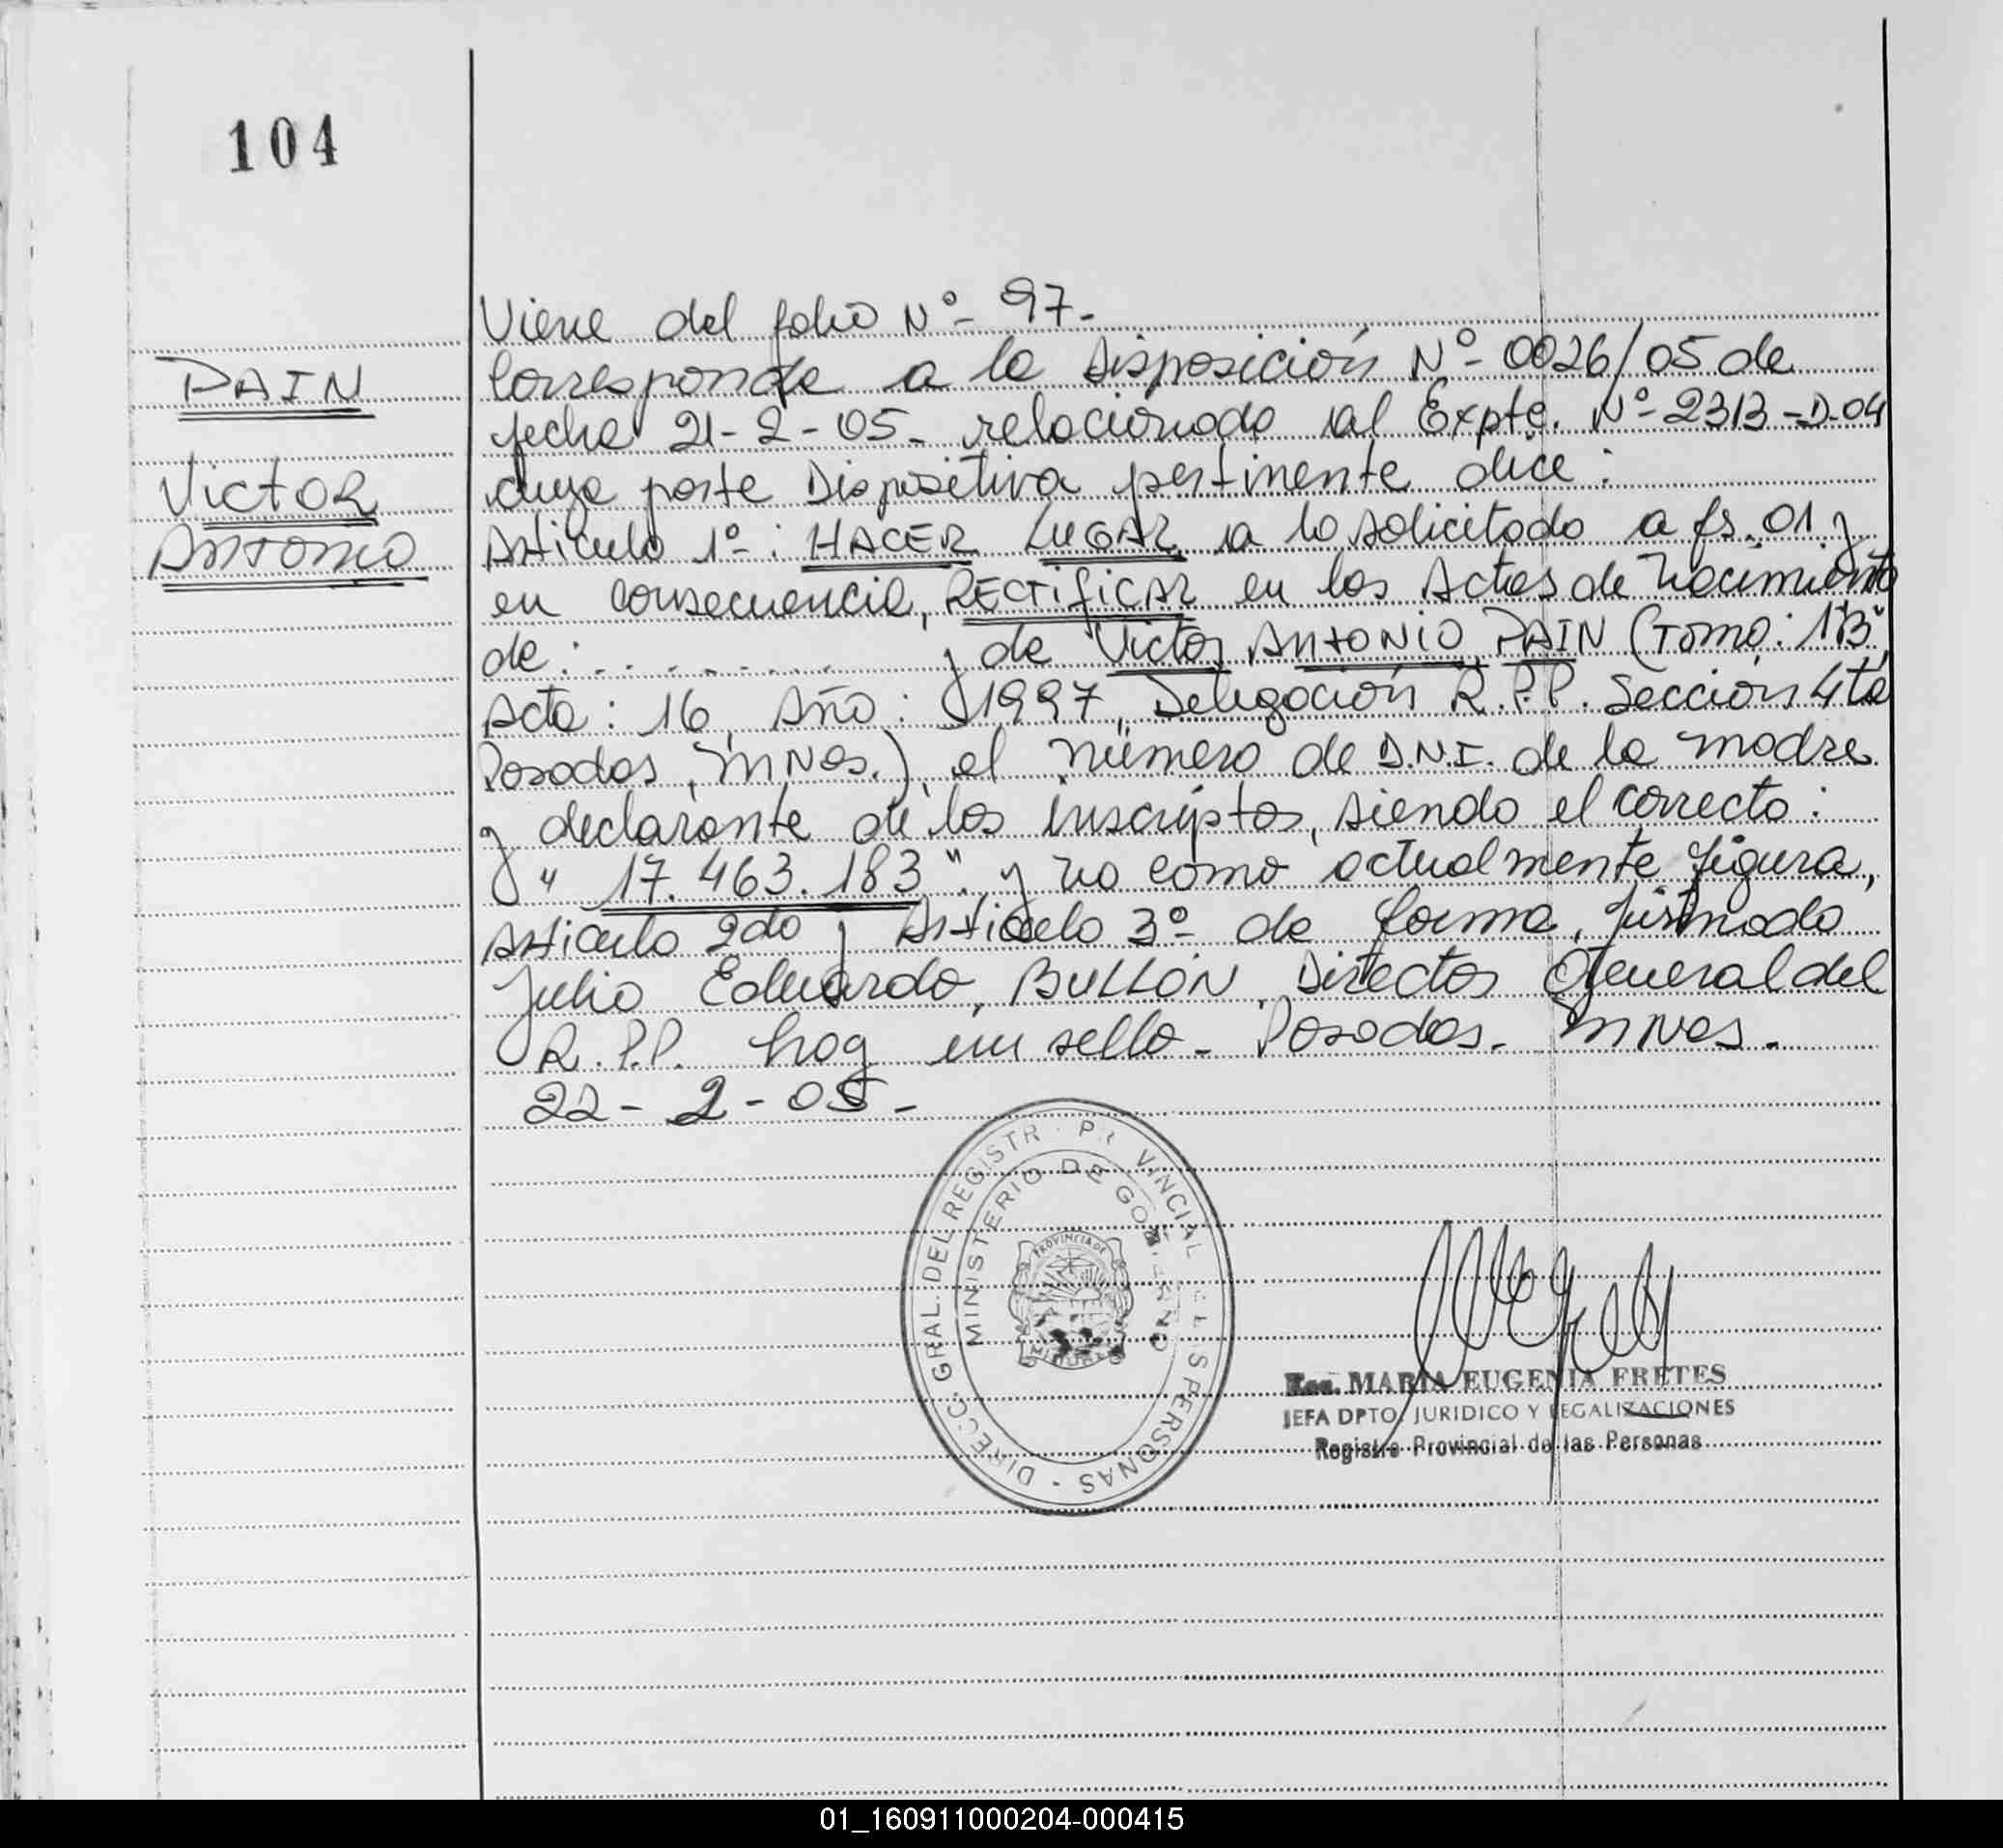 104
Viene del folio Nº- 97-
PAIN
Corresponde a la Disposición Nº- 0026/05 de
fecha 21-2-05- relacionado al Expte. Nº-2313-D-04
VICTOR
cuya parte Dispositiva pertinente dice:
ANTONIO
Artículo 1º-: HACER LUGAR a lo solicitado a fs. 01 y
en consecuencia, RECTIFICAR en las Actas de Nacimiento
de: .......... y de Victor ANTONIO PAIN (Tomo: 1"B",
Acta: 16, Año: 1997, Delegación R.P.P. Sección 4ta
Posadas, Mnes.), el número de D.N.I. de la madre
y declarante de los inscriptos, siendo el correcto:
" 17.463.183 ". y no como actualmente figura,
Artículo 2do y Artículo 3º- de forma, firmado
Julio Eduardo, BULLÓN, Director General del
R.P.P. hay un sello- Posadas- Mnes-
22-2-05-
DIRECC. GRAL. DEL REGISTR PR VINCIAL E L S PERSONAS -
MINISTERIO DE GOBIERNO
PROVINCIA DE
Esc. MARIA EUGENIA FRETES
JEFA DPTO. JURIDICO Y LEGALIZACIONES
Registro Provincial de las Personas
01_160911000204-000415